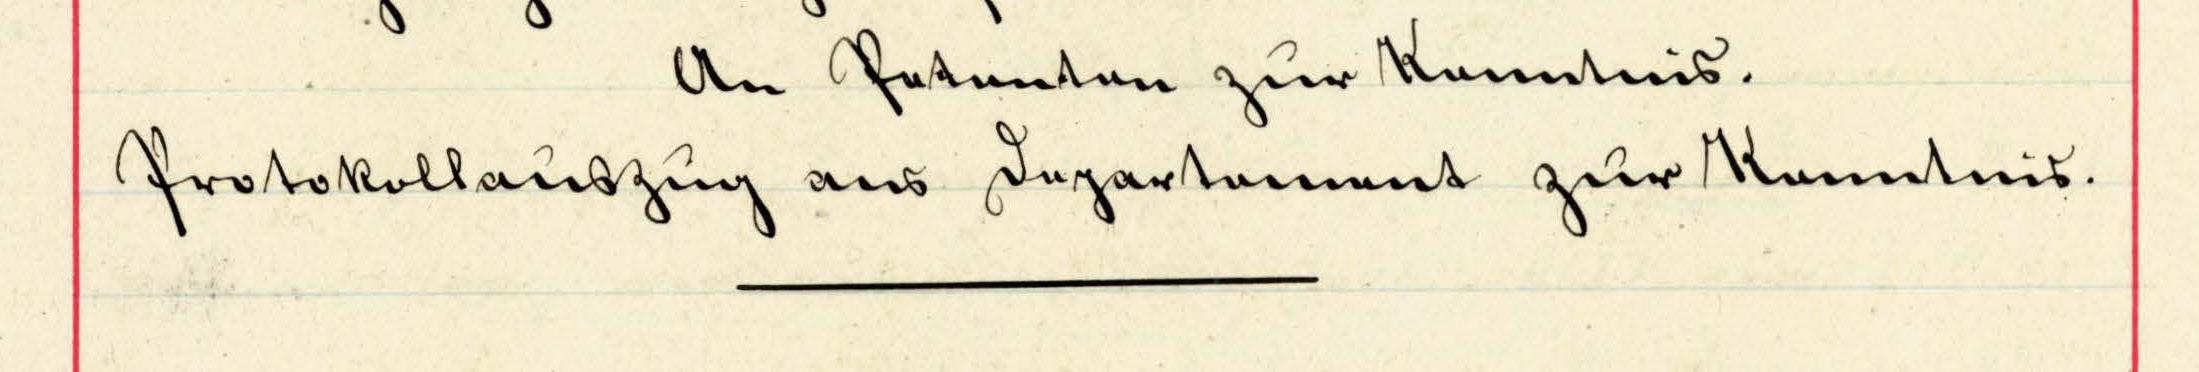 An Petenten zur Kenntnis.
Protokollauszug ans Departement zur Kenntnis.